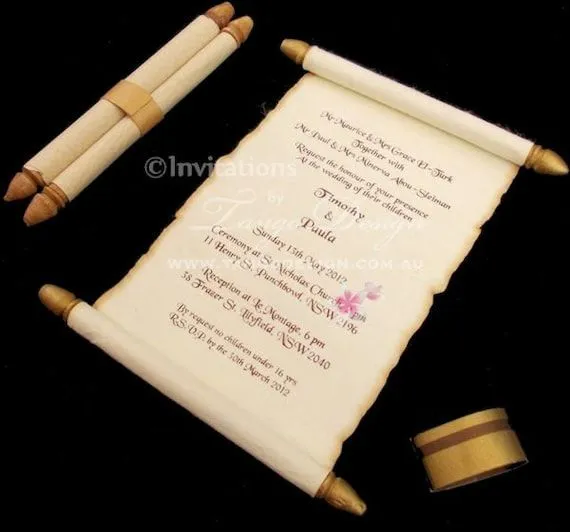 Mr Maurice & Mrs Grace El-Turk
Together with
Mr Paul & Mrs Minerva Abou-Sleiman
Request the honour of your presence
At the wedding of their children
©Invitations
by
Tango Design
Timothy
&
Paula
Sunday 13th May 2012
Ceremony at St Nicholas Church
11 Henry St, Punchbowl, NSW 2196
WWW.TANGODESIGN.COM.AU
Reception at Le Montage, 6 pm
38 Frazer St, Lilyfield, NSW 2040
By request no children under 16 yrs
R.S.V.P. by the 30th March 2012